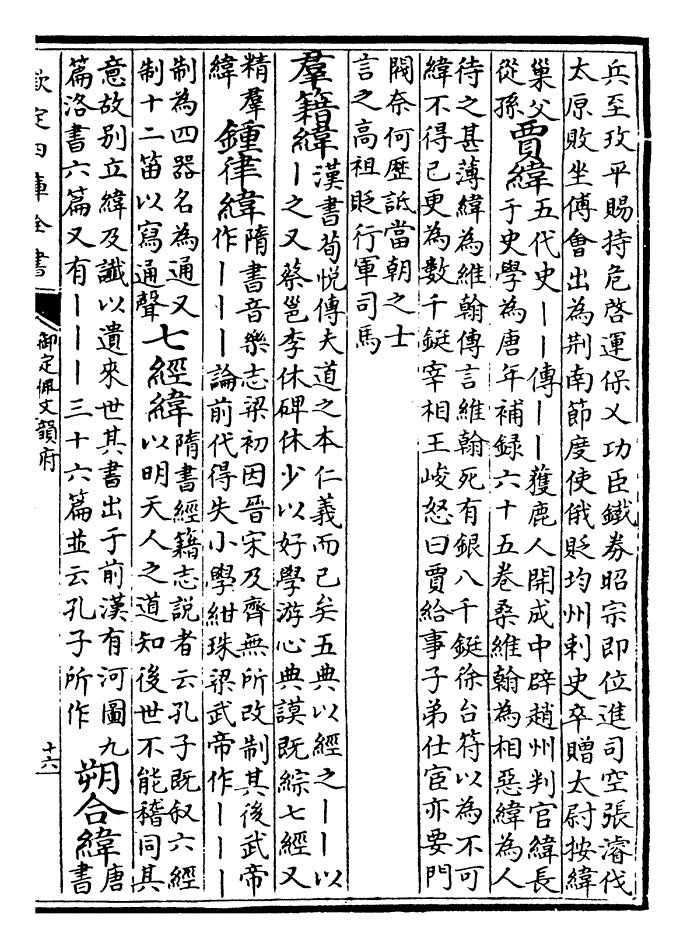 兵至攻平賜持危啓運保乂功臣鐵券昭宗即位進司空張濬伐
太原敗坐傅會出為荆南節度使俄貶均州刺史卒贈太尉按緯
巢父
從孫
賈緯
五代史丨丨傳丨丨獲鹿人開成中辟趙州判官緯長
于史學為唐年補錄六十五卷桑維翰為相惡緯為人
待之甚薄緯為維翰傳言維翰死有銀八千鋌徐台符以為不可
緯不得已更為數千鋌宰相王峻怒曰賈給事子弟仕宦亦要門
閥奈何歷詆當朝之士
言之高祖貶行軍司馬
羣籍緯
漢書荀悅傳夫道之本仁義而已矣五典以經之丨丨以
丨之又蔡邕李休碑休少以好學游心典謨既綜七經又
精羣
緯
鍾律緯
隋書音樂志梁初因晉宋及齊無所改制其後武帝
作丨丨丨論前代得失小學紺珠梁武帝作丨丨丨
制為四器名為通又
制十二笛以寫通聲
七經緯
隋書經籍志說者云孔子既叙六經
以明天人之道知後世不能稽同其
意故别立緯及讖以遺來世其書出于前漢有河圖九
篇洛書六篇又有丨丨丨三十六篇並云孔子所作
朔合緯
唐
書
欽定四庫全書
御定佩文韻府
十六